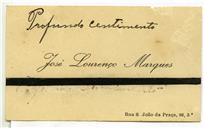 Profundo sentimento
José Lourenço Marques
Rua S. João da Praça, 95, 3.º